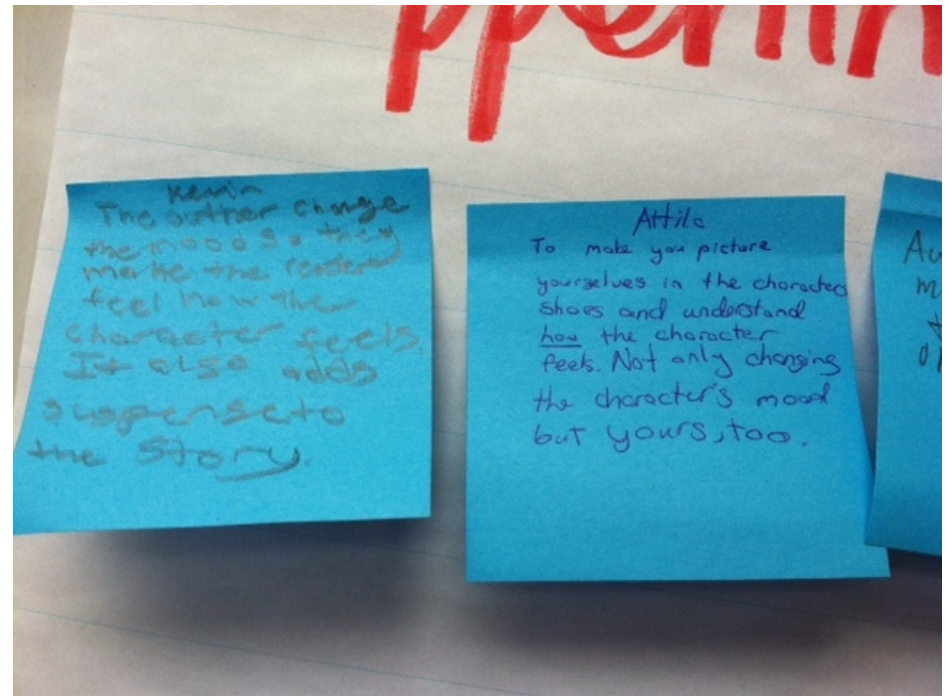 ppenin
Kevin
The author change
the moods so they
make the reader
feel how the
character feels.
It also adds
suspense to
the story.
Attila
To make you picture
yourselves in the character
shoes and understand
how the character
feels. Not only changing
the character's mood
but yours, too.
Au
m